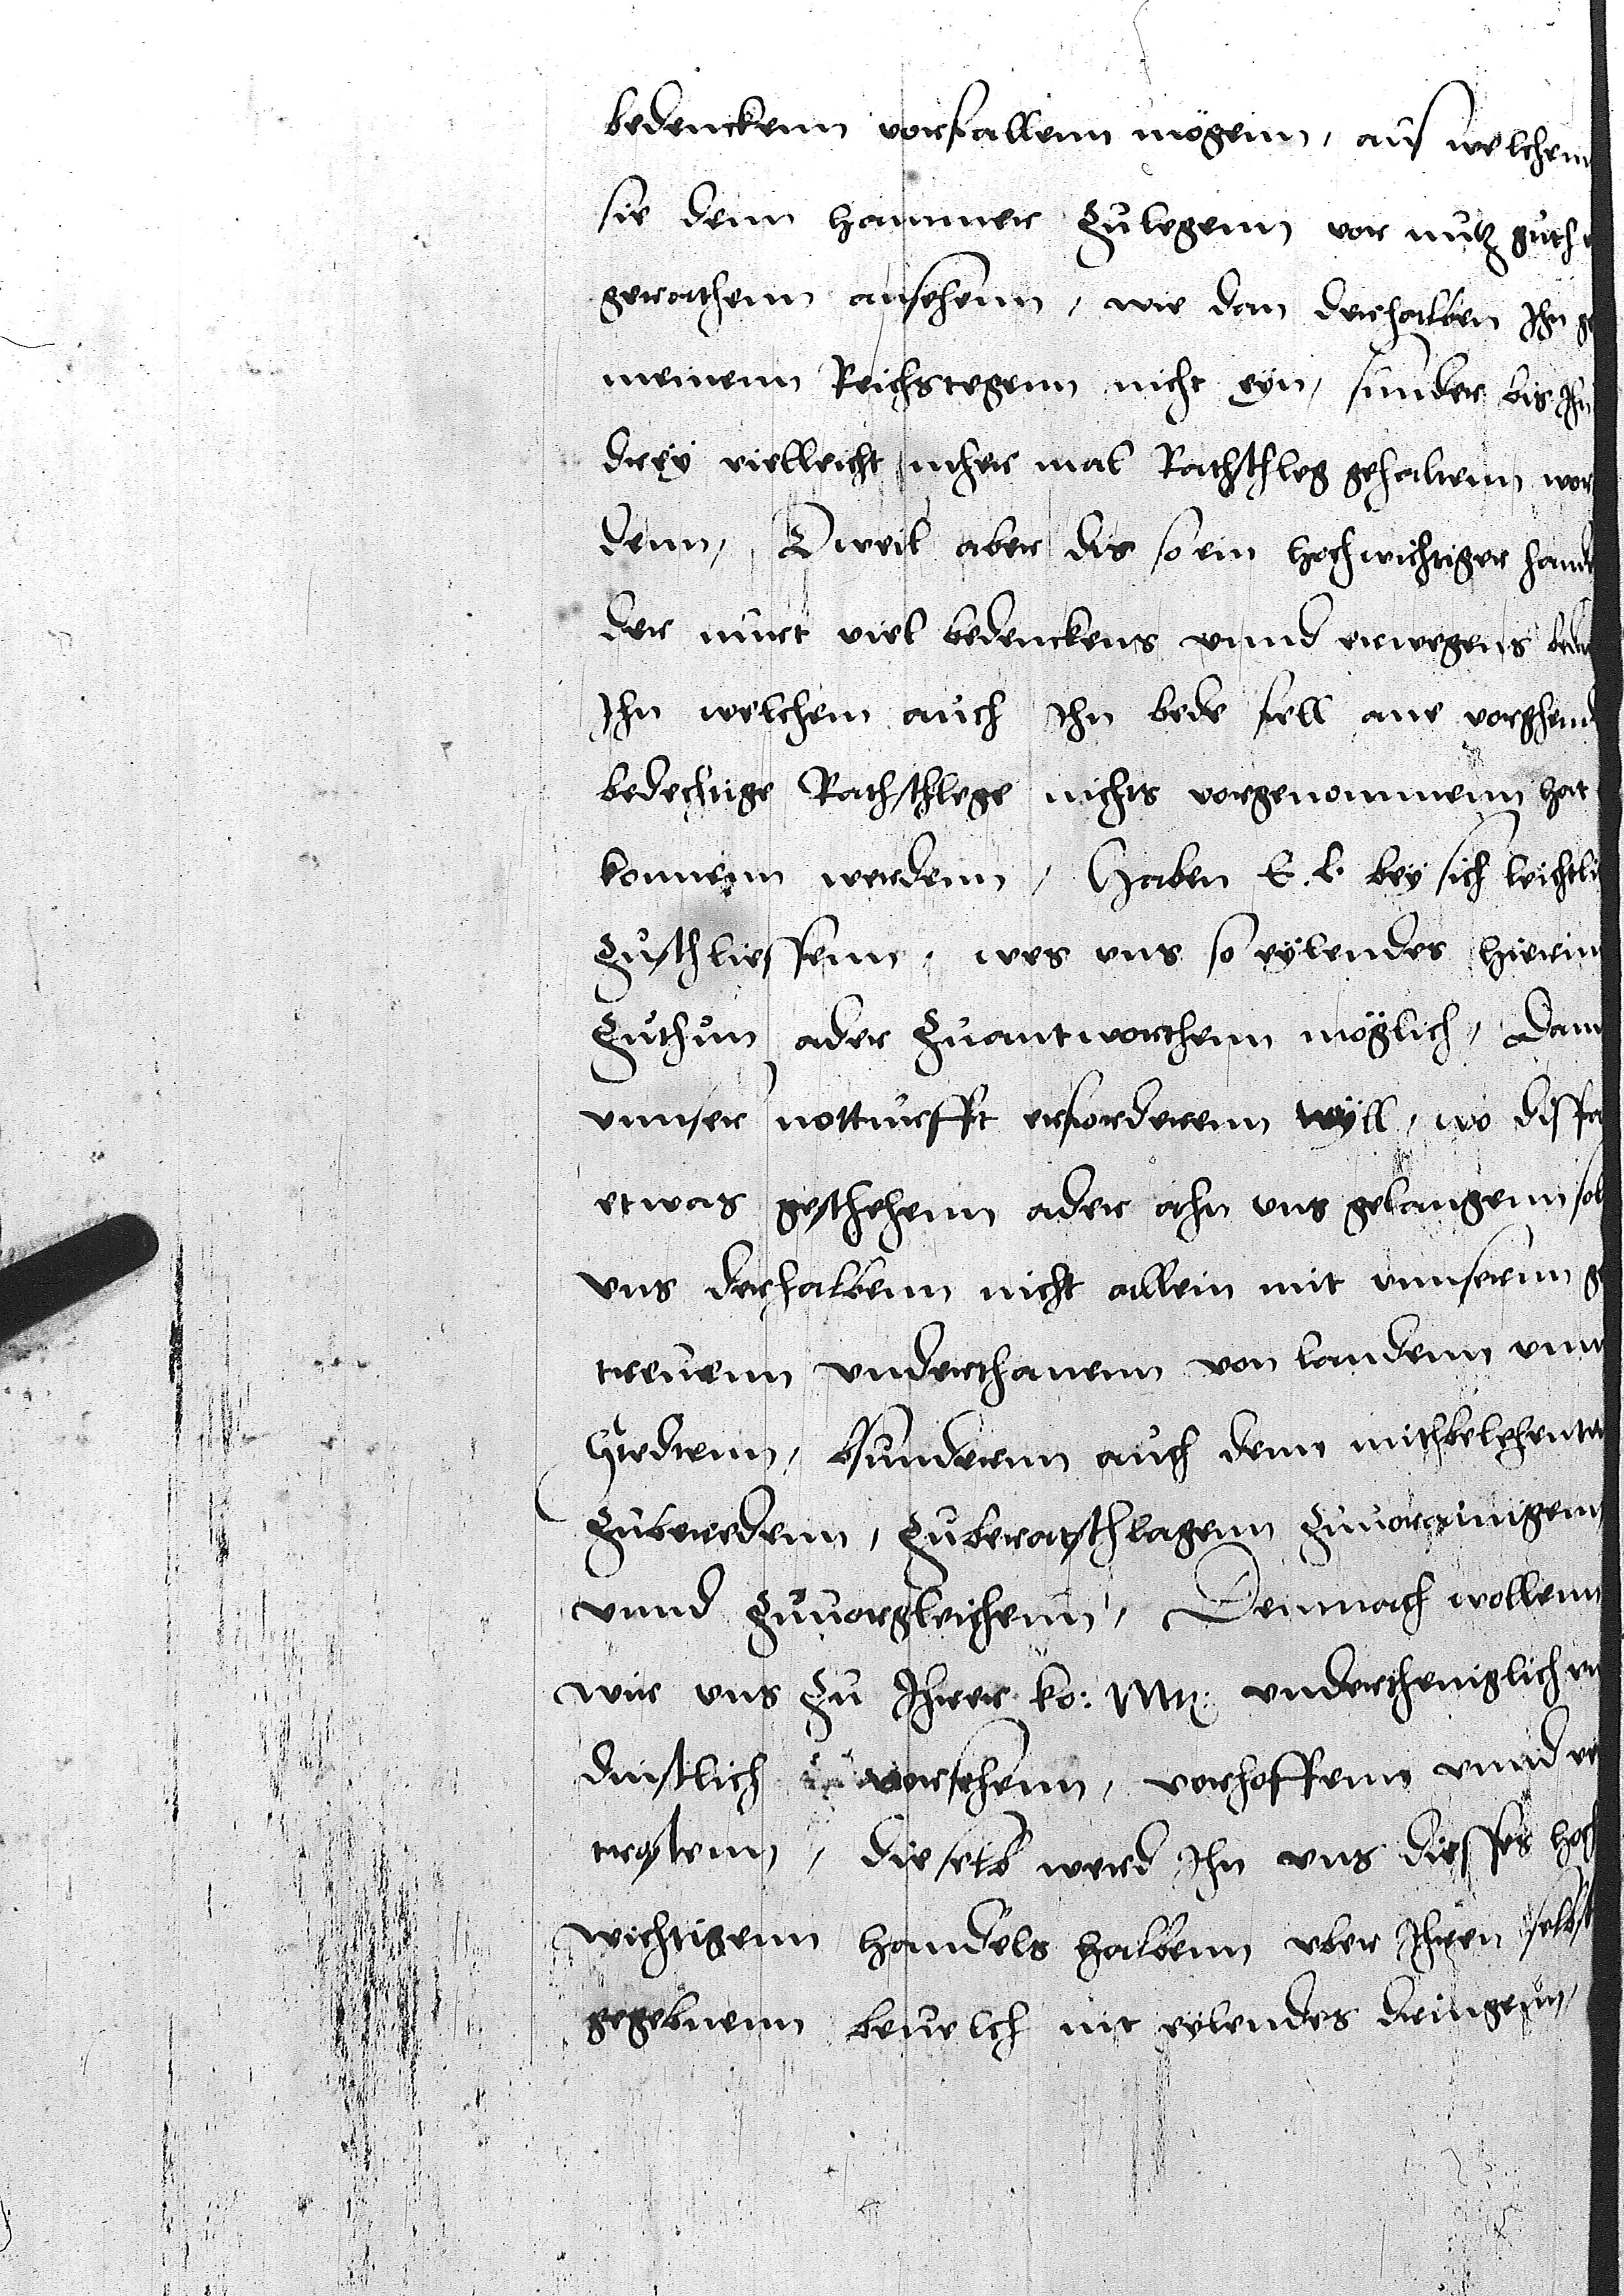 bedenckenn vorfallenn mögenn, aus welchenn
sie denn hammer zulegenn vor nutz guth
gerathenn ansehenn, wie dan derhalben Ihn ge
meinenn Reichstegenn nicht eyn, sunder bis Ihn
drey vielleicht meher mal Rathschleg gehaltenn wor
denn, Dweil aber dis so ein hochwichtiger hand
der nurt viel bedenckens vnnd erwegens
Ihn welchem auch Ihn bede fell ane vorghend
bedechtige Rathschlege nichts vorgenommenn hat
konnenn werdenn, Haben E. L. bey sich leichtli
zuschliessenn, wes vns so eylendes hierin
zuthun ader zuantworthenn möglich, Dann
vnnser notturfft erforderenn wyll, wo
etwas geschehenn ader ahn vns gelangenn sol
vns derhalbenn nicht allein mit vnnserenn ge
treuenn vnderthanenn von landenn vnn
Stedtenn, bsunderenn auch denn mithbelehenten
zuberedenn, zuberatschlagenn zuuoreinigenn
vnnd zuuorgleichenn, Demnach wollenn
wir vns zu Ihrer ko: Mt: vndertheniglich vn
dinstlich vorsehenn, vorhoffenn vnnd ve
trostenn, dieselb werd Ihn vns diesses hoch
wichtigenn handels halbenn vber Ihren selbst
gegebnenn beuelch nit eylendes dringenn,